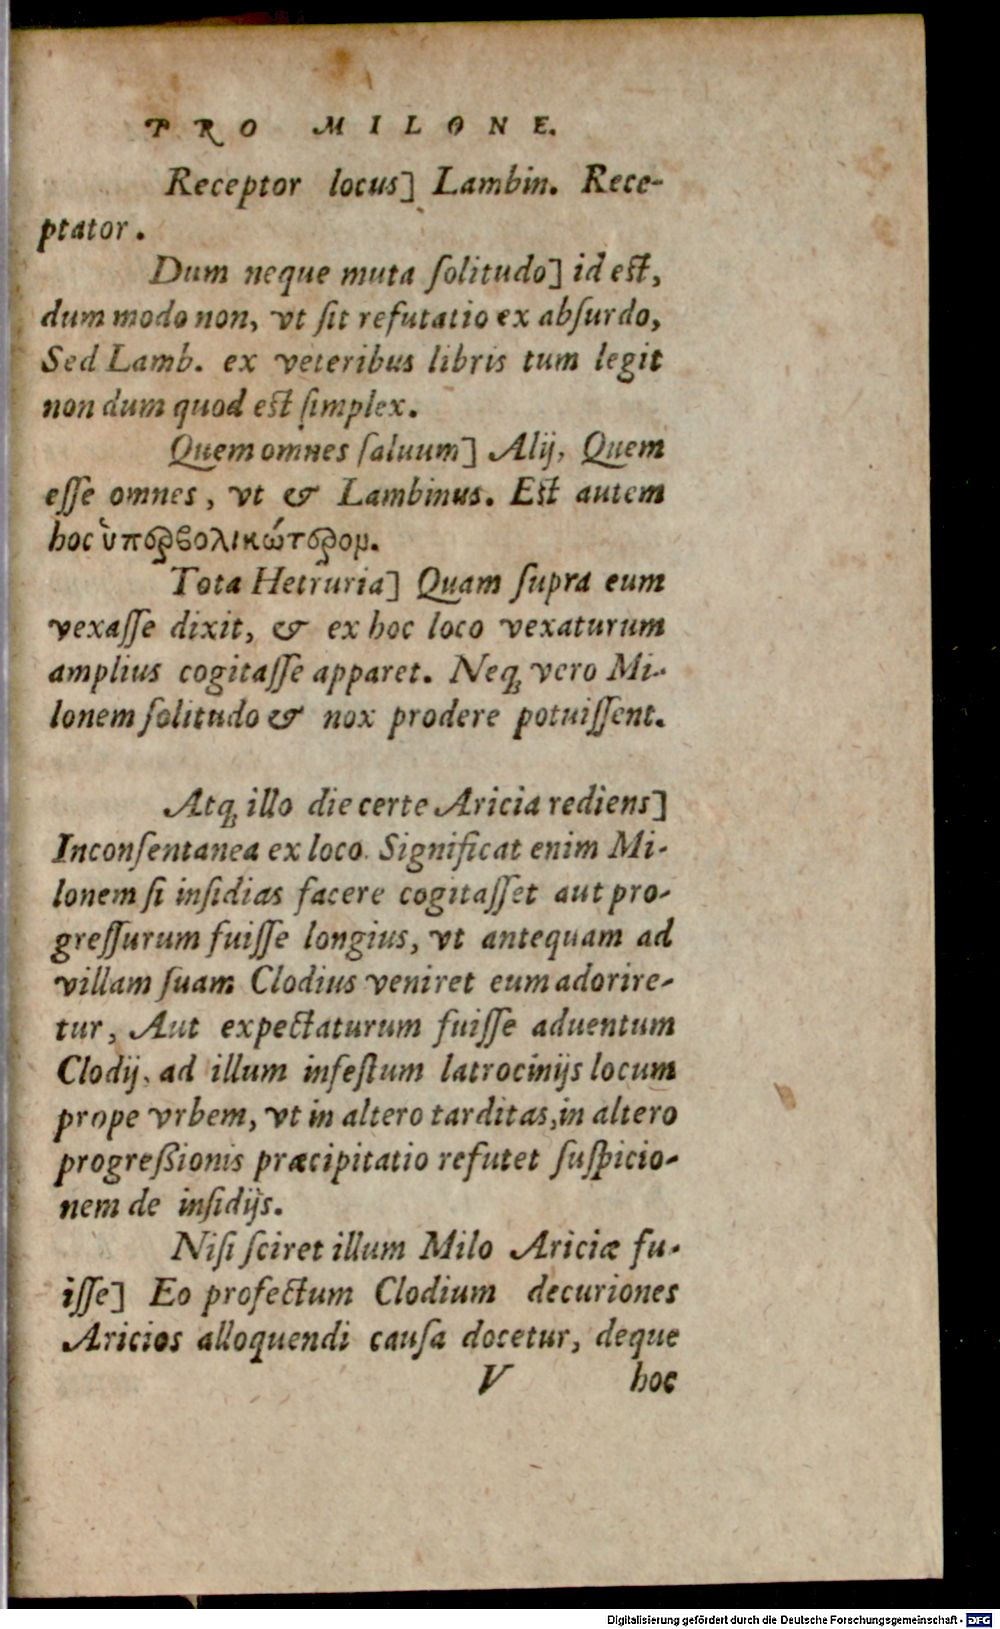 PRO MILONE.
Receptor locus] Lambin. Rece-
ptator.
Dum neque muta ſolitudo] id est,
dum modo non, vt ſit refutatio ex abſurdo,
Sed Lamb. ex veteribus libris tum legit
non dum quod est ſimplex.
Quem omnes ſaluum] Alij, Quem
eſſe omnes, vt & Lambinus. Est autem
hoc ὑπερβολικώτερομ.
Tota Hetruria] Quam ſupra eum
vexaſſe dixit, & ex hoc loco vexaturum
amplius cogitaſſe apparet. Neq; vero Mi-
lonem ſolitudo & nox prodere potuiſſent.
Atq; illo die certe Aricia rediens]
Inconſentanea ex loco. Significat enim Mi-
lonem ſi inſidias facere cogitaſſet aut pro-
greſſurum fuiſſe longius, vt antequam ad
villam ſuam Clodius veniret eum adorire-
tur, Aut expectaturum fuiſſe aduentum
Clodij, ad illum infeſtum latrocinijs locum
prope vrbem, vt in altero tarditas, in altero
progreßionis præcipitatio refutet ſuſpicio-
nem de inſidijs.
Niſi ſciret illum Milo Ariciæ fu-
iſſe] Eo profectum Clodium decuriones
Aricios alloquendi cauſa docetur, deque
V hoc
Digitalisierung gefördert durch die Deutsche Forschungsgemeinschaft - DFG